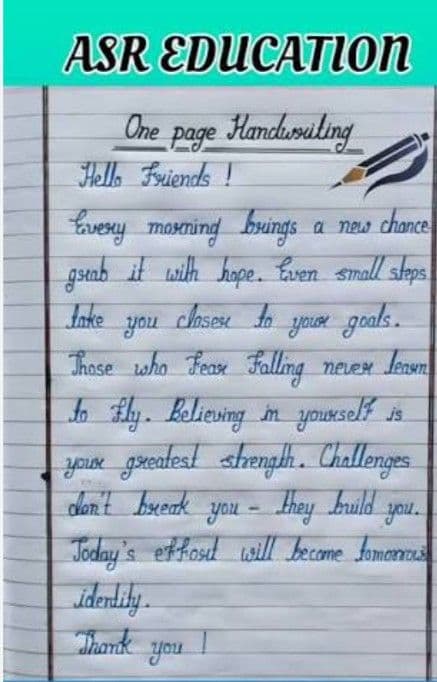 ASR EDUCATION
One page Handwriting
Hello Friends !
Every morning brings a new chance
grab it with hope. Even small steps
take you closer to your goals.
Those who Fear Falling never learn
to Fly. Believing in yourself is
your greatest strength. Challenges
don't break you - they build you.
Today's effort will become tomorrows
identity.
Thank you !